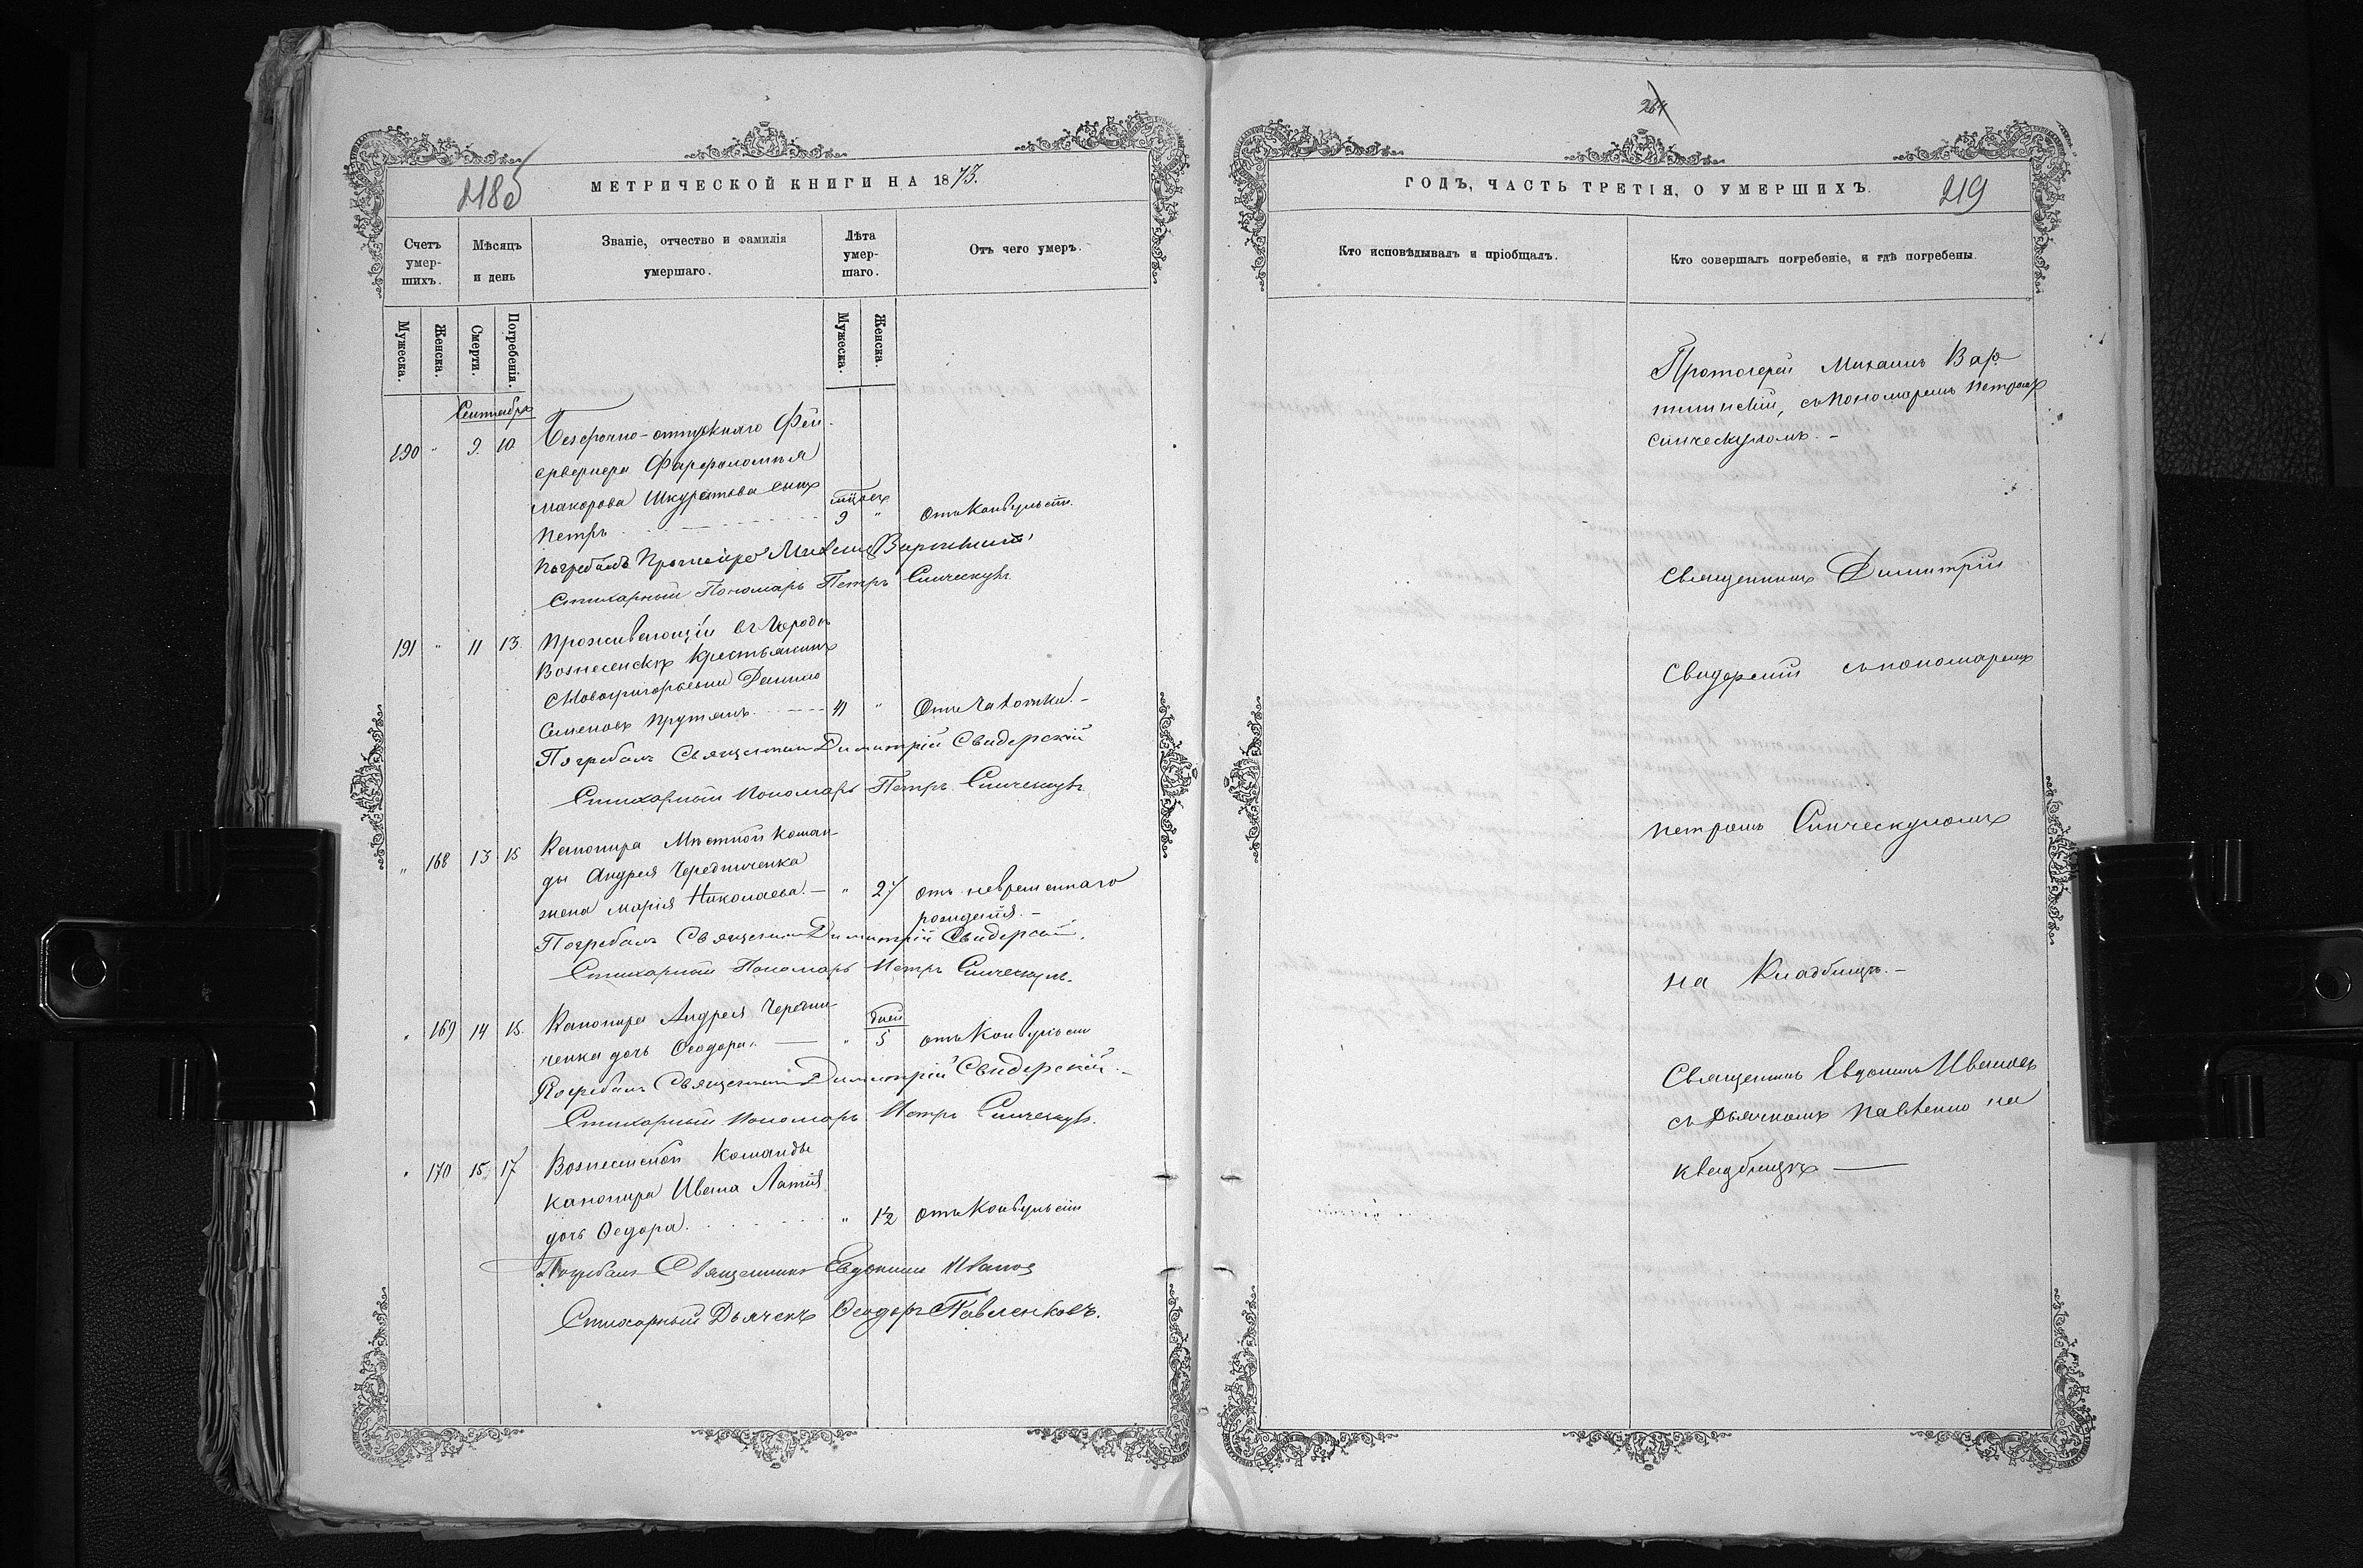 2185
МЕТРИЧЕСКОЙ КНИГИ НА 1873.
Счетъ умершихъ.
Мѣсяцъ и день
Званіе, отчество и фамилія умершаго.
Лѣта умершаго.
Отъ чего умеръ.
Мужеска.
Женска.
Смерти.
Погребенія.
Мужеска.
Женска.
Сентябрь
190 " 9. 10. Безсрочно-отпускнаго Фей-
ерверкера
Макарова Шкуратова сынъ мѣсяц.
Петръ 9 " Отъ Конвульсіи.
Погребалъ Протоіерей Михаилъ
Стихарный Пономарь Петръ Синческулъ
191 " 11 13. Проживающій въ Городѣ
Вознесенскѣ Крестьянинъ
Новогригорьевки Данило
Семеновъ Прутянъ. 41 " Отъ Чахотки. -
Погребалъ Священникъ Димитрій Свидерскій
Стихарный Пономарь Петръ Синческулъ
" 168 13 15 Канонира Мѣстной Коман-
ды Андрея Чередниченка
жена Марія Николаева. - " 27 отъ невременнаго
рожденія. -
Погребалъ Священникъ Димитрій Свидерскій.
Стихарный Пономарь Петръ Синческулъ.
" 169 14 15. Канонира Андрея Чередни- дней
ченка дочь Ѳеодора. — " 5 отъ Конвульсіи
Погребалъ Священникъ Димитрій Свидерскій. -
Стихарный Пономарь Петръ Синческулъ.
" 170 15. 17 Вознесенской Команды
канонира Ивана Латія
дочь Ѳедора. " 1½ отъ Конвульсіи
Погребалъ Священникъ Евдокимъ Ивановъ
Стихарный Дьячекъ Ѳеодоръ Павленковъ.
264
ГОДЪ, ЧАСТЬ ТРЕТІЯ, О УМЕРШИХЪ.
219
Кто исповѣдывалъ и пріобщалъ.
Кто совершалъ погребеніе, и гдѣ погребены.
Протоіерей Михаилъ Вар-
съ пономаремъ Петромъ
Синческуломъ. -
Священникъ Димитрій
Свидерскій съ пономаремъ
Петромъ Синческуломъ
на Кладбищѣ. -
Священникъ Евдокимъ Ивановъ
съ Дьячкомъ Павленко на
кладбищѣ —